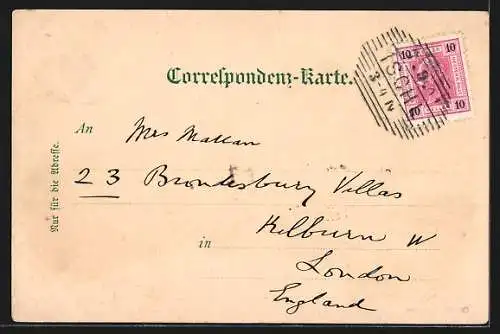 Correspondenz-Karte.
10 10
ISCHL
10 10
An Mrs Mallan
23 Brondesbury Villas
Kilburn W
in London
England
Nur für die Adresse.